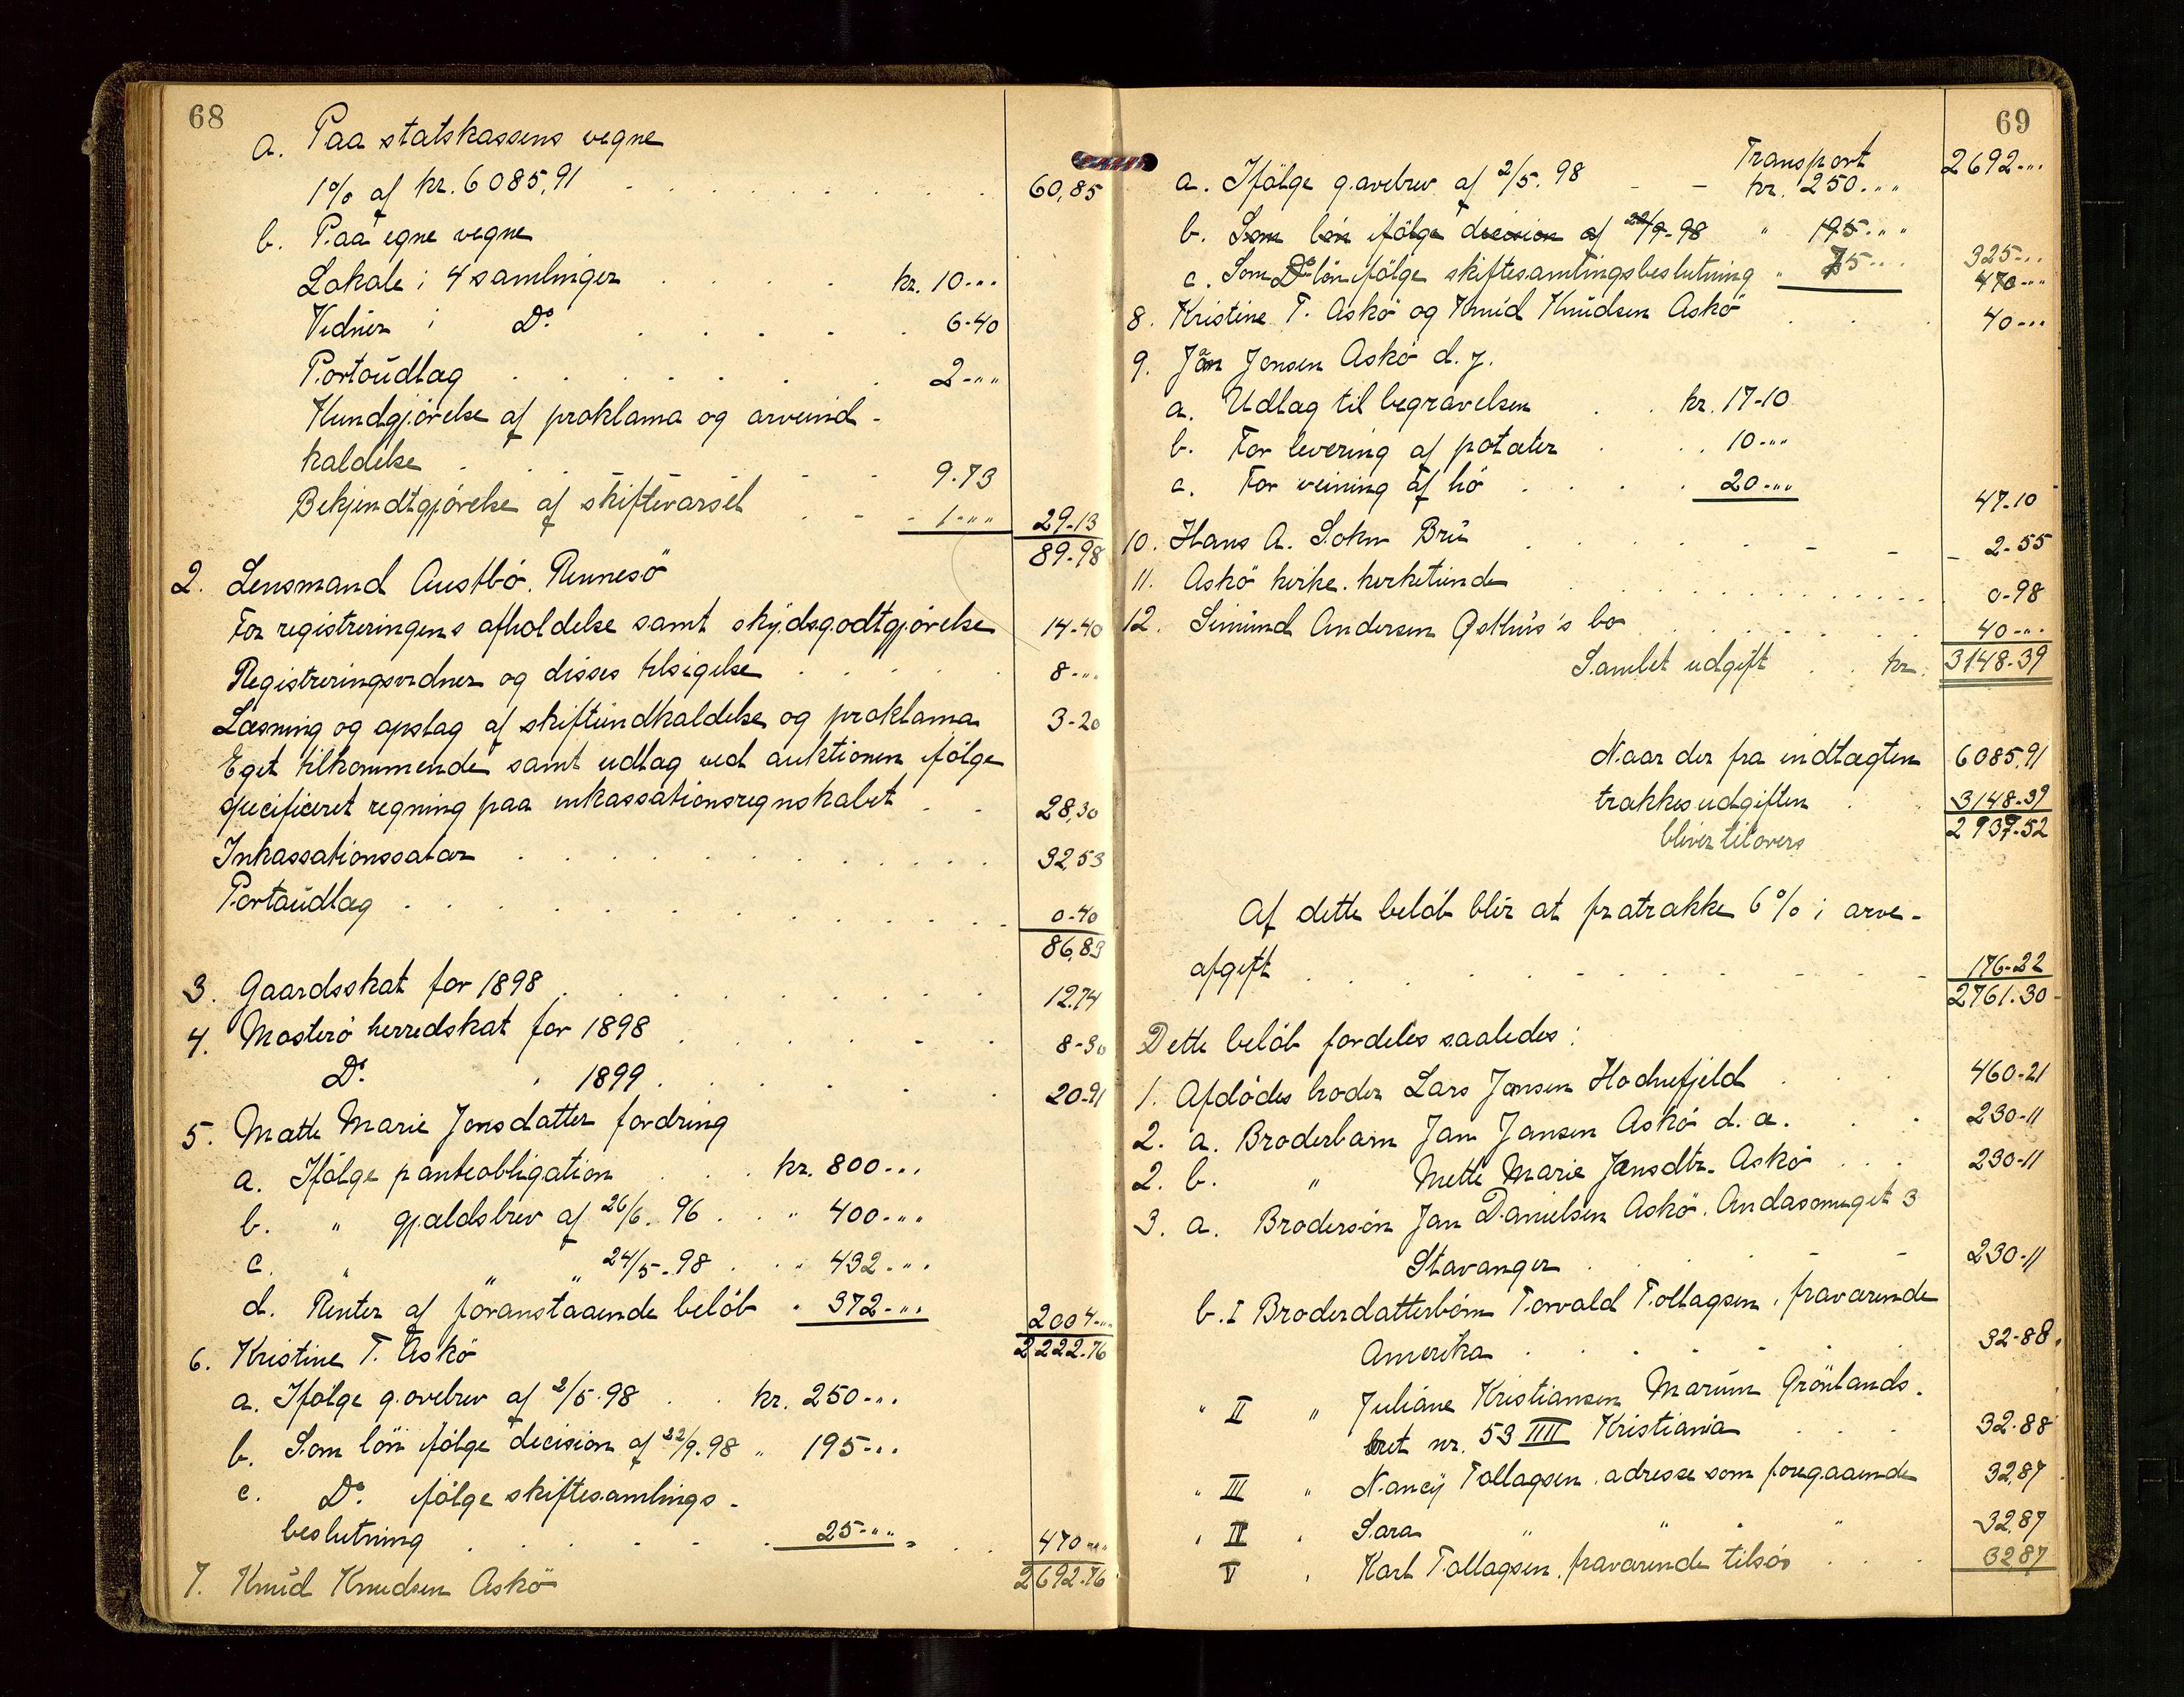 68
a. Paa statskassens vegne
1% af kr. 6085,91 . . . . . . . . . 60,85
b. Paa egne vegne
Lokale i 4 samlinger . . . . kr. 10-""
Vidner i Do. . . . . . 6-40
Portoudlag . . . . . . . 2-""
Kundgjörelse af proklama og arveind-
kaldelse . . . . . . . 9.73
Bekjendtgjörelse af skiftevarsel . . . 1-"" 29-13
89-98
2. Lensmand Austbö. Rennesö
For registreringens afholdelse samt skydsgodtgjörelse 14-40
Registreringsvidner og disses tilsigelse . . . . 8-""
Læsning og opslag af skifteindkaldelse og proklama 3-20
Eget tilkommende samt udlag ved auktionen ifölge
specificeret regning paa inkassationsregnskabet . . 28,30
Inkassationssalær . . . . . . . . . . 32,53
Portoudlag . . . . . . . . . . . 0-40
86,83
3. Gaardsskat for 1898 . . . . . . . . 12.74
4. Mosterö herredskat for 1898 . . . . . . 8-30
Do. " 1899 . . . . . . 20-91
5. Mette Marie Jonsdatter fordring
a. Ifölge panteobligation . . . kr. 800-""
b. " gjældsbrev af 26/6. 96 . . " 400-""
c. " " " 24/5-98 . . " 432-""
d. Renter af foranstaaende belöb " 372-"" 2004-""
2222-76
6. Kristine T. Askö
a. Ifölge gavebrev af 2/5.98 . . kr. 250-""
b. Som lön ifölge decision af 22/9.98 " 195-""
c. Do. ifölge skiftesamlings-
beslutning . . . . . . 25-"" . . 470-""
2692-76
7. Knud Knudsen Askö
69
Transport 2692-""
a. Ifölge gavebrev af 2/5. 98 - - kr. 250-""
b. Som lön ifölge decision af 22/9-98 " 195-""
c. Som Do lön ifölge skiftesamlingsbeslutning " 75-"" 325-""
470-""
8. Kristine T. Askö og Knud Knudsen Askö . . . 40-""
9. Jon Jonsen Askö d. y.
a. Udlag til begravelsen . . kr. 17-10
b. For levering af poteter . . . 10-""
c. For veining af hö . . . . 20-"" 47-10
10. Hans A. Sokn Bru . . . . . . . 2-55
11. Askö kirke. kirketiende . . . . . . . . 0-98
12. Simund Andersen Østhus's bo . . . . . . 40-""
Samlet udgift . . kr. 3148-39
Naar der fra indtægten 6085,91
trækkes udgiften . 3148-39
bliver tilovers 2937-52
Af dette belöb blir at fratrække 6% i arve-
afgift . . . . . . . . . . 176-22
2761.30
Dette belöb fordeles saaledes:
1. Afdödes broder Lars Jonsen Hodnefjeld . . . 460-21
2. a. Broderbarn Jon Jonsen Askö d. æ. . . 230-11
2. b. " Mette Marie Jonsdtr. Askö . . . 230-11
3. a. Brodersön Jon Danielsen Askö. Andasmuget 3
Stavanger . . . . . 230-11
b. I Broderdatterbörn Torvald Tollagsen, fraværende
Amerika . . . . . . 32-88
" II " Juliane Kristiansen Marum Grönlands-
leret nr. 53 IIII Kristiania . . . 32-88
" III " Nancy Tollagsen. adresse som foregaaende 32,87
" IV " Sara " " " " 32,87
V " Karl Tollagsen, fraværende tilsös . . . 32,87